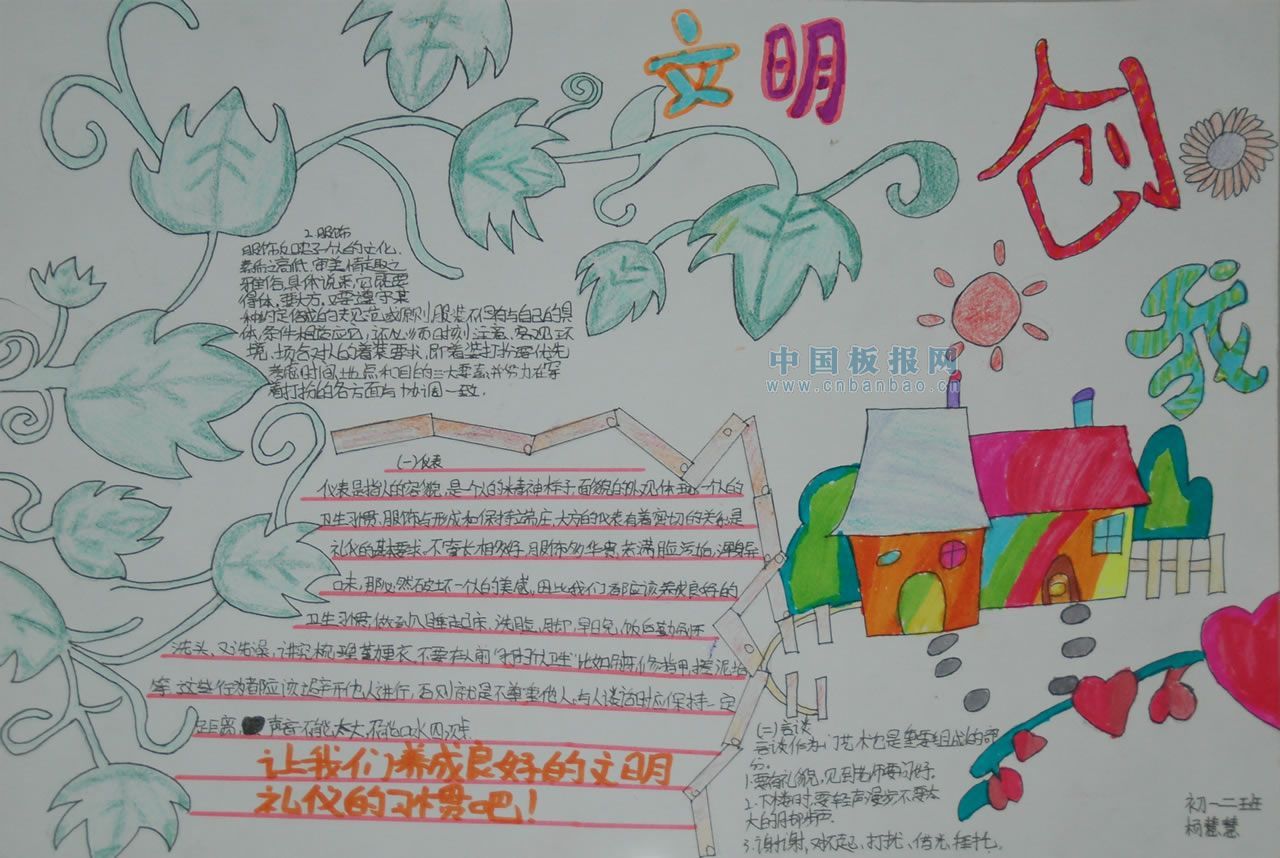 文明
创
我
2服饰
服饰反映了一个人的文化
素质之高低,审美情趣之
雅俗.具体说来,它既要
得体,要大方,又要遵守某
种约定俗成的规范或原则.服装不但要与自己的具
体条件相适应,还必须时刻注意客观环
境、场合对人的着装要求,即着装打扮要优先
考虑时间、地点和目的三大要素,并努力在穿
着打扮的各方面与 协调一致.
中国板报网
www.cnbanbao.cn
(一)仪表
仪表是指人的容貌,是一个人的精神样子面貌的外观体现一个人的
卫生习惯.服饰与形成和保持端庄、大方的仪表有着密切的关系是
礼仪的基本要求,不管长相多好,服饰多华贵,若满脸污垢,浑身异
味,那必然破坏一个人的美感,因此我们都应该养成良好的
卫生习惯,做到入睡起床、洗脸、脚、早晚、饭后勤
洗头、又洗澡,讲究梳理勤更衣,不要在人前"打扫个人卫生"比如剔牙 修指甲、搓泥垢
等,这些行为都应该避开他人进行,否则就是不尊重他人,与人谈话时应保持一定
距离 声音不能太大,不能口水四溅
让我们养成良好的文明
礼仪的习惯吧!
(二)言谈
言谈作为门艺术也是重要组成的部
分。
1.要有礼貌,见到老师要问好.
2.下楼时,要轻声漫步不要太
大的脚步声.
3.谢谢,对不起、打扰、借光、拜托、
初一二班
杨慧慧